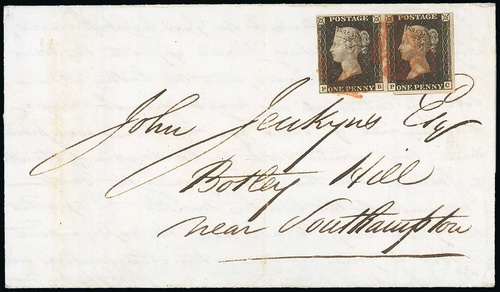 POSTAGE POSTAGE
P ONE PENNY B P ONE PENNY C
John Jenkynes Esq
Botley Hill
near Southampton